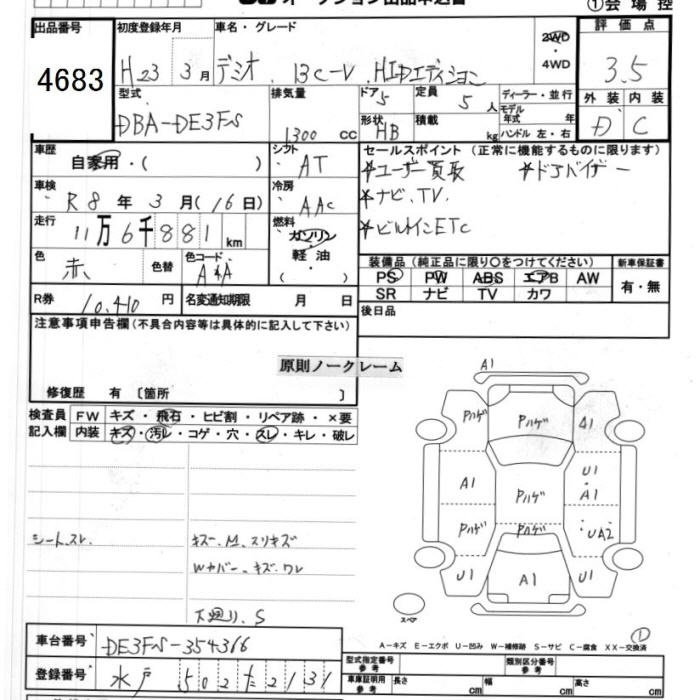 オークション出品申込書
①会場控
出品番号 初度登録年月 車名・グレード 評価点
4683 H23 3月 デミオ 13C-V HIDエディション 2WD・4WD 3.5
型式 排気量 ドア 5 定員 5人 ディーラー・並行 外装 内装
DBA-DE3FS 1300cc 形状 HB 積載 kg モデル年式 年 D C
ハンドル 左・右
車歴 自家用・( ) シフト AT セールスポイント(正常に機能するものに限ります)
*ユーザー買取 *ドアバイザー
車検 R8年3月(16日) 冷房 AAC *ナビ、TV.
走行 11万6千881km 燃料 ガソリン・軽油・( ) *ビルトインETC
色 赤 色替 色コード A4A 装備品(純正品に限り○をつけてください) 新車保証書
PS PW ABS エアB AW 有・無
SR ナビ TV カワ
R券 10,410円 名変通知期限 月 日 後日品
注意事項申告欄(不具合内容等は具体的に記入して下さい)
原則ノークレーム
修復歴 有 [箇所 ]
検査員記入欄 FW キズ・飛石・ヒビ割・リペア跡・×要
内装 キズ・汚レ・コゲ・穴・スレ・キレ・破レ
A1
Pハゲ Pハゲ A1
A1 Pハゲ U1・A1
Pハゲ Pハゲ ・UA2
U1 A1 U1
シートスレ キズー、M、スリキズ
Wカバー、キズ、ワレ
下廻り、S
スペア
①
A-キズ E-エクボ U-凹み W-補修跡 S-サビ C-腐食 XX-交換済
車台番号 DE3FS-354366 型式指定番号 参考 類別区分番号 参考
登録番号 水戸 502 た2131 車庫証明用 参考 長さ cm 幅 cm 高さ cm